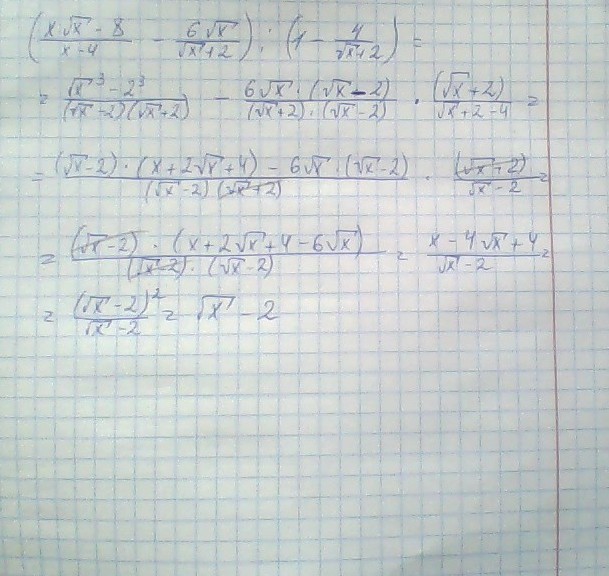 ( (x√x - 8)/(x - 4) - 6√x/(√x + 2) ) : ( 1 - 4/(√x + 2) ) =
= (√x³ - 2³)/((√x - 2)(√x + 2)) - (6√x · (√x - 2))/((√x + 2) · (√x - 2)) · (√x + 2)/(√x + 2 - 4) =
= ((√x - 2) · (x + 2√x + 4) - 6√x · (√x - 2))/((√x - 2)(√x + 2)) · (√x + 2)/(√x - 2) =
= ((√x - 2) · (x + 2√x + 4 - 6√x))/((√x - 2) · (√x - 2)) = (x - 4√x + 4)/(√x - 2) =
= (√x - 2)²/(√x - 2) = √x - 2